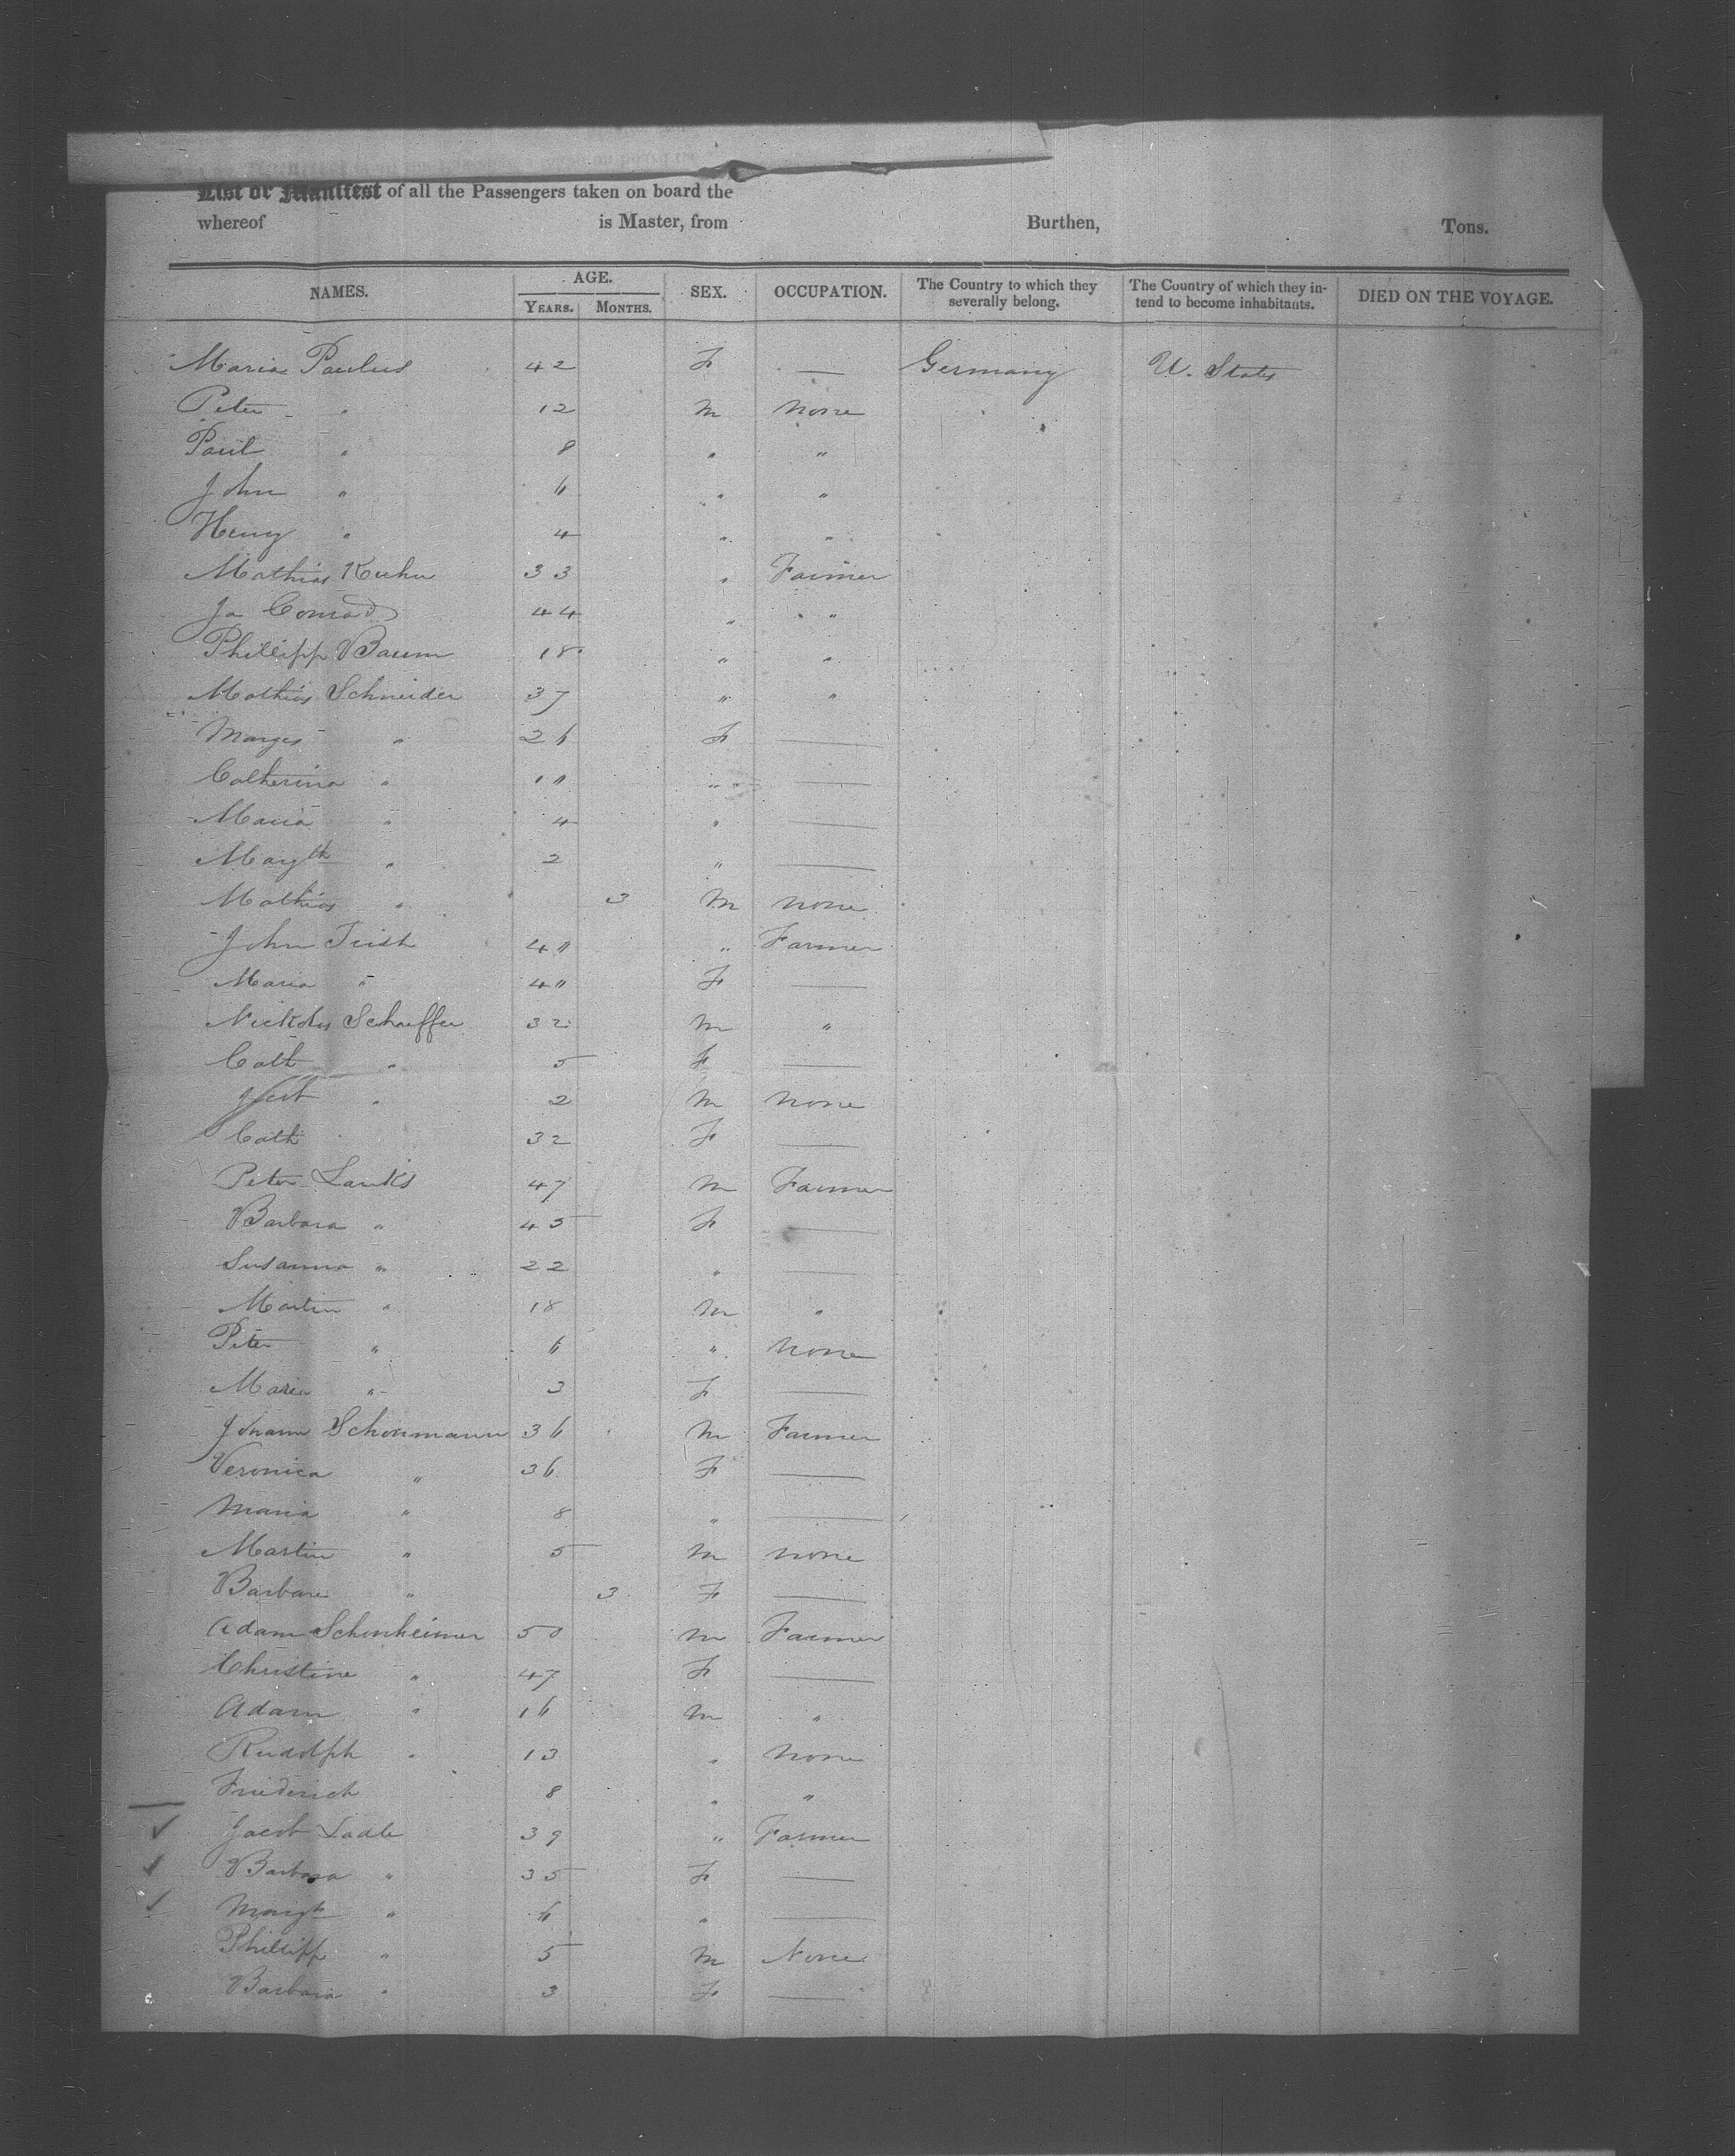 List or Manifest of all the Passengers taken on board the
whereof is Master, from Burthen, Tons.
NAMES. AGE. YEARS. MONTHS. SEX. OCCUPATION. The Country to which they severally belong. The Country of which they intend to become inhabitants. DIED ON THE VOYAGE.
Maria Paulus 42 F — Germany U. States
Peter " 12 m none
Paul " 8 " "
John " 6 " "
Henry " 4 " "
Mathias Kuhn 33 " Farmer
Jo Conrad 44 " "
Philipp Baum 18 " "
Mathias Schneider 37 " "
Marges " 26 F —
Catherina " 10 " —
Maria " 4 " —
Margth " 2 " —
Mathias " 3 m none
John Trist 40 " Farmer
Maria " 40 F —
Nickolus Schaeffer 32 m "
Cath " 5 F —
Jacob " 2 m none
Cath " 32 F —
Peter Lanks 47 m Farmer
Barbara " 45 F —
Susanna " 22 " —
Martin " 18 m "
Peter " 6 " none
Maria " 3 F —
Johann Schonmann 36 m Farmer
Veronica " 36 F —
Maria " 8 " —
Martin " 5 m none
Barbara " 3 F —
Adam Schonheimer 50 m Farmer
Christine " 47 F —
Adam " 16 m "
Rudolph " 13 " none
Friederich 8 " "
Jacob Ladle 39 " Farmer
Barbara " 35 F —
Margth " 6 " —
Philipp " 5 m None
Barbara " 3 F —